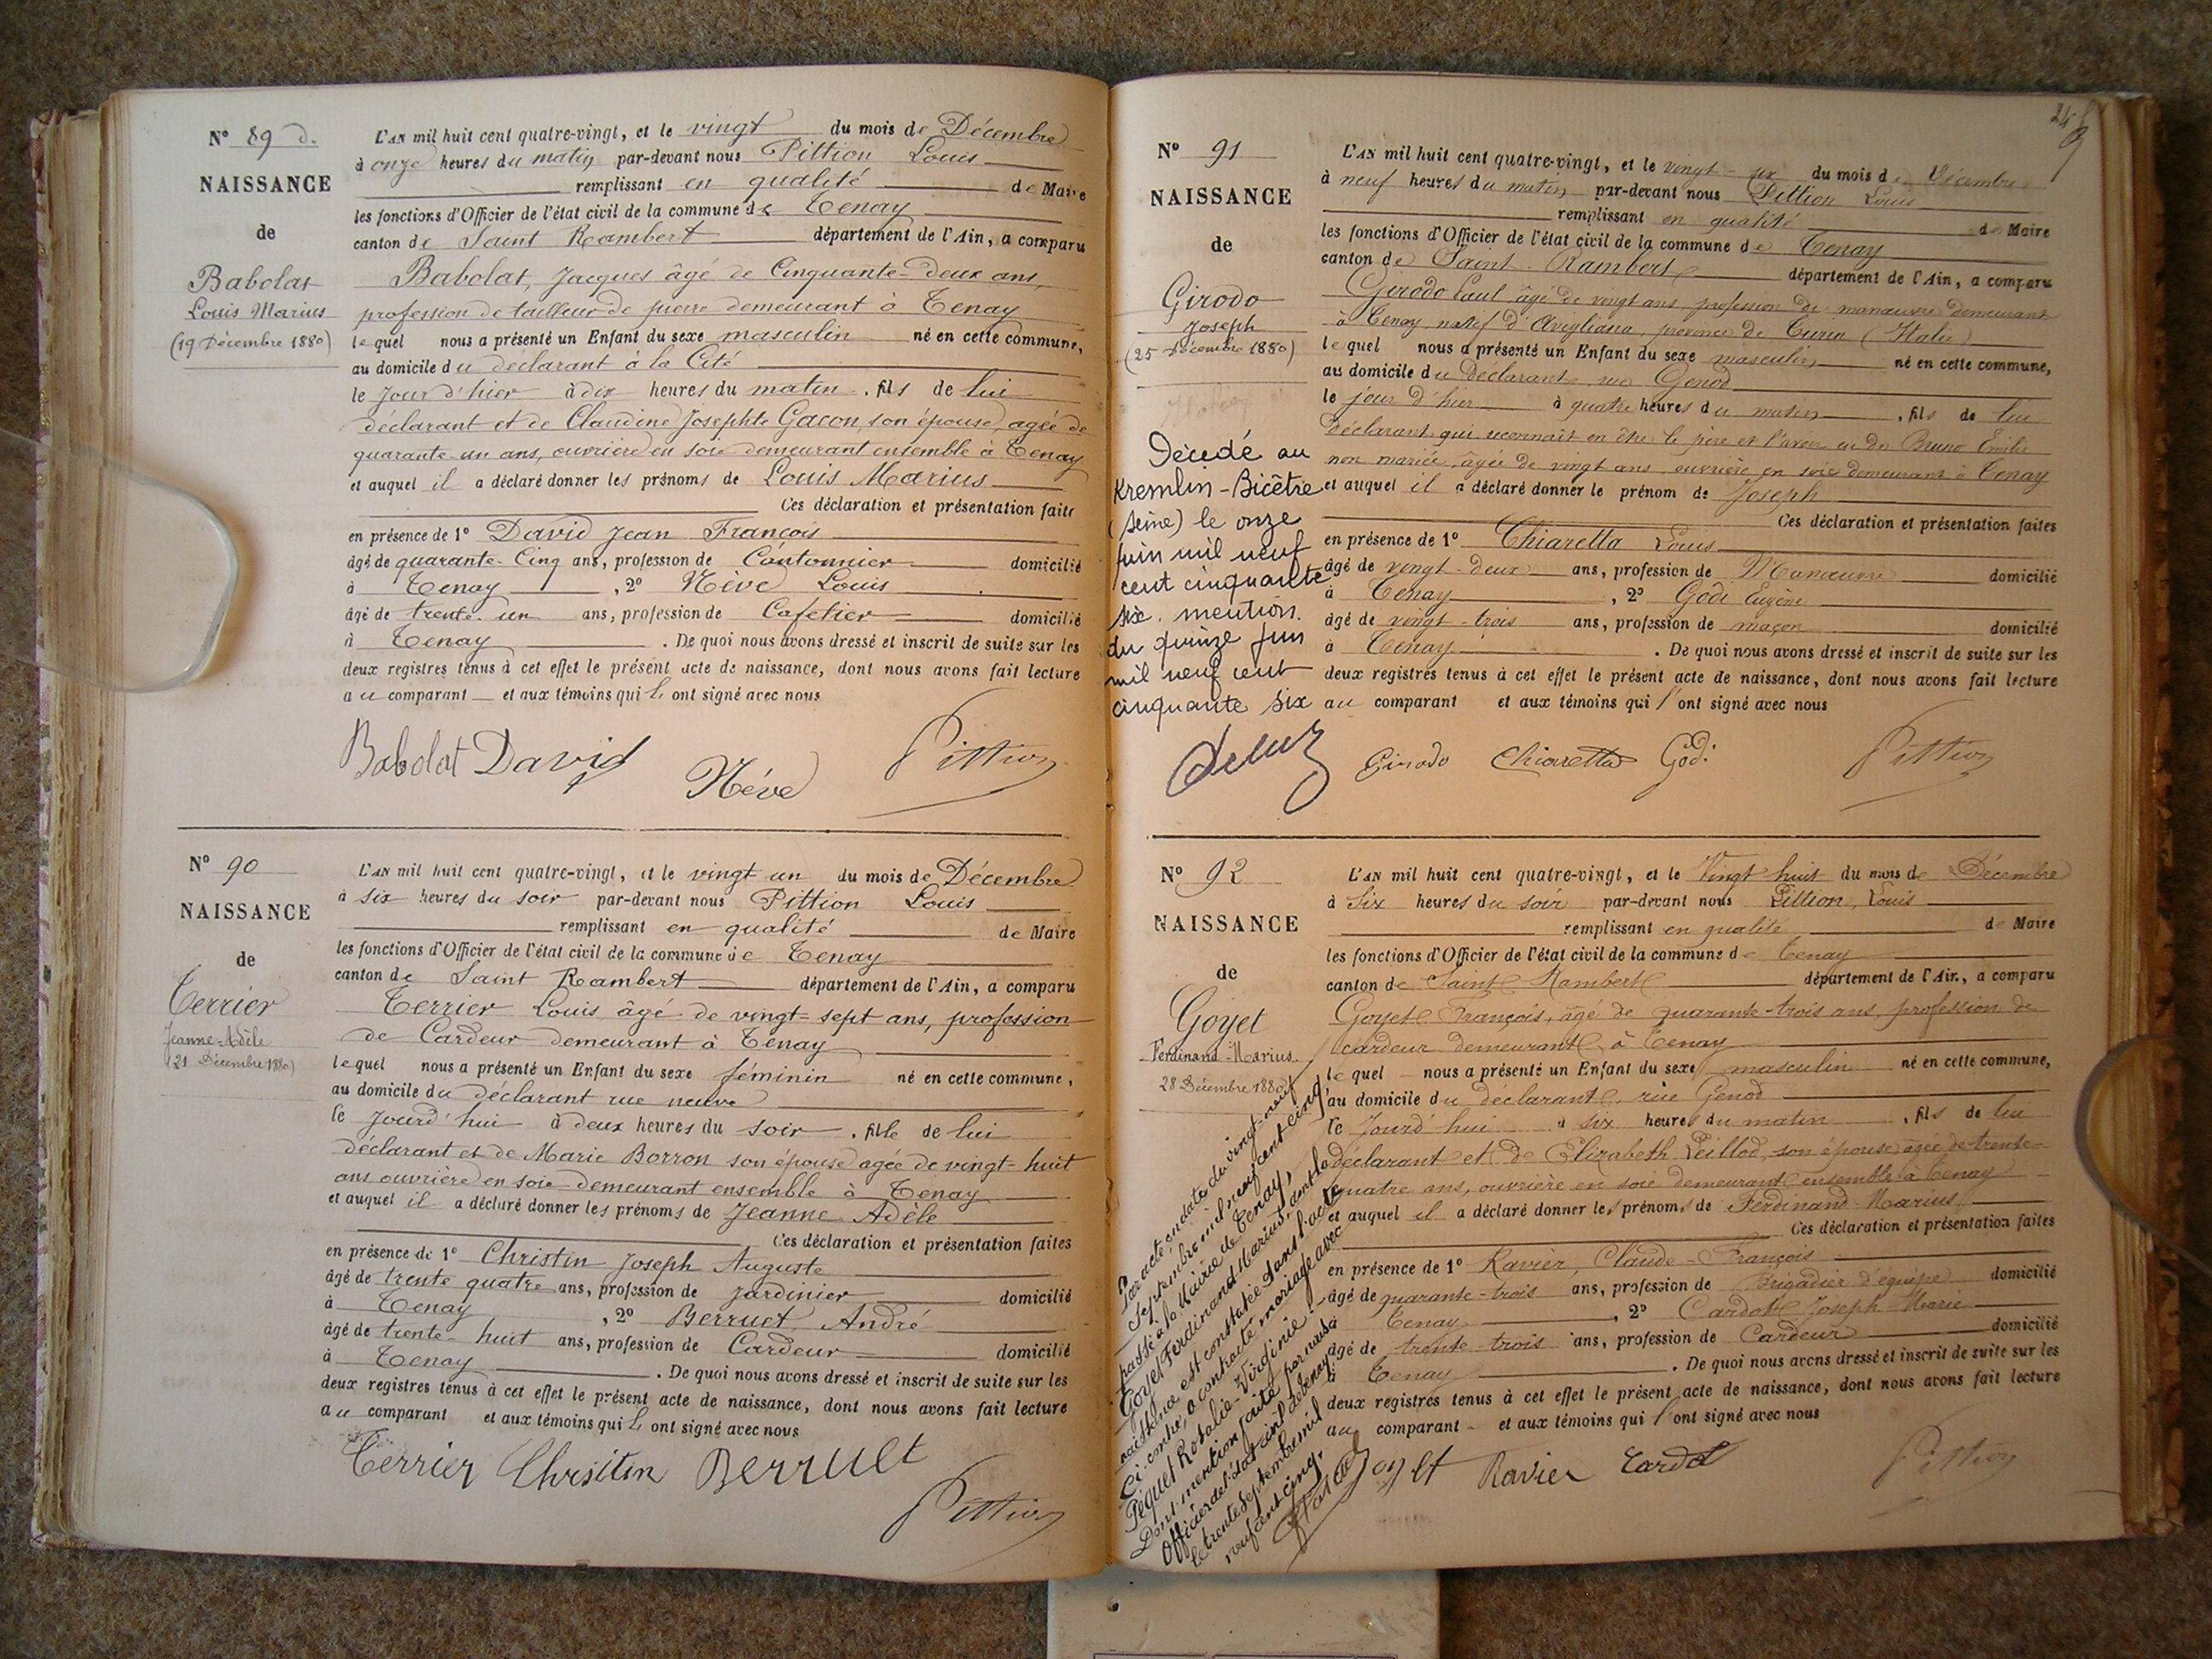 N° 89 d.
NAISSANCE
de
Babolat
Louis Marius
(19 Décembre 1880)
L'AN mil huit cent quatre-vingt, et le vingt du mois de Décembre
à onze heures du matin, par-devant nous Pittion Louis
remplissant en qualité de Maire
les fonctions d'Officier de l'état civil de la commune de Tenay
canton de Saint Rambert département de l'Ain, a comparu
Babolat, Jacques âgé de Cinquante-deux ans,
profession de tailleur de pierre demeurant à Tenay
lequel nous a présenté un Enfant du sexe masculin né en cette commune,
au domicile du déclarant à la Cité
le jour d'hier à dix heures du matin, fils de lui
déclarant et de Claudine Josephte Gacon, son épouse, agée de
quarante-un ans, ouvrière en soie demeurant ensemble à Tenay
et auquel il a déclaré donner les prénoms de Louis Marius
Ces déclaration et présentation faites
en présence de 1° David Jean François
âgé de quarante-Cinq ans, profession de Cantonnier domicilié
à Tenay, 2° Nève Louis
âgé de trente-un ans, profession de Cafetier domicilié
à Tenay. De quoi nous avons dressé et inscrit de suite sur les
deux registres tenus à cet effet le présent acte de naissance, dont nous avons fait lecture
au comparant et aux témoins qui l' ont signé avec nous
Babolat David Néve Pittion
N° 90
NAISSANCE
de
Terrier
Jeanne-Adèle
(21 Décembre 1880)
L'AN mil huit cent quatre-vingt, et le vingt un du mois de Décembre
à six heures du soir par-devant nous Pittion Louis
remplissant en qualité de Maire
les fonctions d'Officier de l'état civil de la commune de Tenay
canton de Saint Rambert département de l'Ain, a comparu
Terrier Louis âgé de vingt-sept ans, profession
de Cardeur demeurant à Tenay
lequel nous a présenté un Enfant du sexe féminin né en cette commune,
au domicile du déclarant rue neuve
le jourd'hui à deux heures du soir, fille de lui
déclarant et de Marie Borron son épouse agée de vingt-huit
ans ouvrière en soie demeurant ensemble à Tenay
et auquel il a déclaré donner les prénoms de Jeanne Adèle
Ces déclaration et présentation faites
en présence de 1° Christin Joseph Auguste
âgé de trente quatre ans, profession de jardinier domicilié
à Tenay, 2° Berruet André
âgé de trente-huit ans, profession de Cardeur domicilié
à Tenay. De quoi nous avons dressé et inscrit de suite sur les
deux registres tenus à cet effet le présent acte de naissance, dont nous avons fait lecture
au comparant et aux témoins qui l' ont signé avec nous
Terrier Christin Berruet
Pittion
N° 91
NAISSANCE
de
Girodo
Joseph
(25 Décembre 1880)
Décédé au
Kremlin-Bicêtre
(Seine) le onze
juin mil neuf
cent cinquante
six. mention.
du quinze juin
mil neuf cent
cinquante six
L'AN mil huit cent quatre-vingt, et le vingt-six du mois de Décembre
à neuf heures du matin, par-devant nous Pittion Louis
remplissant en qualité de Maire
les fonctions d'Officier de l'état civil de la commune de Tenay
canton de Saint-Rambert département de l'Ain, a comparu
Girodo Paul, âgé de vingt ans, profession de manœuvre demeurant
à Tenay natif d'Avigliana, province de Turin (Italie)
lequel nous a présenté un Enfant du sexe masculin né en cette commune,
au domicile du déclarant rue Genod
le jour d'hier à quatre heures du matin, fils de lui
déclarant qui reconnaît en être le père et l'avoir eu de Bruno Emilie
non mariée, âgée de vingt ans ouvrière en soie demeurant à Tenay
et auquel il a déclaré donner le prénom de Joseph
Ces déclaration et présentation faites
en présence de 1° Chiaretta Louis
âgé de vingt-deux ans, profession de Manœuvre domicilié
à Tenay, 2° Godi Eugène
âgé de vingt-trois ans, profession de maçon domicilié
à Tenay. De quoi nous avons dressé et inscrit de suite sur les
deux registres tenus à cet effet le présent acte de naissance, dont nous avons fait lecture
au comparant et aux témoins qui l' ont signé avec nous
Girodo Chiaretta Godi Pittion
N° 92
NAISSANCE
de
Goyet
Ferdinand-Marius
28 Décembre 1880
Par acte en date du vingt-neuf
Septembre mil neuf cent cinq,
passé à la Mairie de Tenay,
Goyet Ferdinand Marius, dont la
naissance est constatée dans l'acte
Ci-contre, a contracté mariage avec
Péquet Rosalie-Virginie.
Dont mention faite par nous
Officier de l'état civil de Tenay
le trente Septembre mil
neuf cent cinq.
L'AN mil huit cent quatre-vingt, et le Vingt huit du mois de Décembre
à Six heures du soir par-devant nous Pittion, Louis
remplissant en qualité de Maire
les fonctions d'Officier de l'état civil de la commune de Tenay
canton de Saint Rambert département de l'Ain, a comparu
Goyet François, âgé de quarante-trois ans, profession de
cardeur demeurant à Tenay
lequel nous a présenté un Enfant du sexe masculin né en cette commune,
au domicile du déclarant, rue Genod
le Jourd'hui à six heures du matin, fils de lui
déclarant et de Elizabeth Peillod, son épouse, agée de trente-
quatre ans, ouvrière en soie demeurant ensemble à Tenay
et auquel il a déclaré donner les prénoms de Ferdinand Marius
Ces déclaration et présentation faites
en présence de 1° Ravier, Claude-François
âgé de quarante-trois ans, profession de Brigadier d'équipe domicilié
à Tenay, 2° Cardot Joseph Marie
âgé de trente-trois ans, profession de Cardeur domicilié
à Tenay. De quoi nous avons dressé et inscrit de suite sur les
deux registres tenus à cet effet le présent acte de naissance, dont nous avons fait lecture
au comparant et aux témoins qui l' ont signé avec nous
Goyet Ravier Cardot Pittion